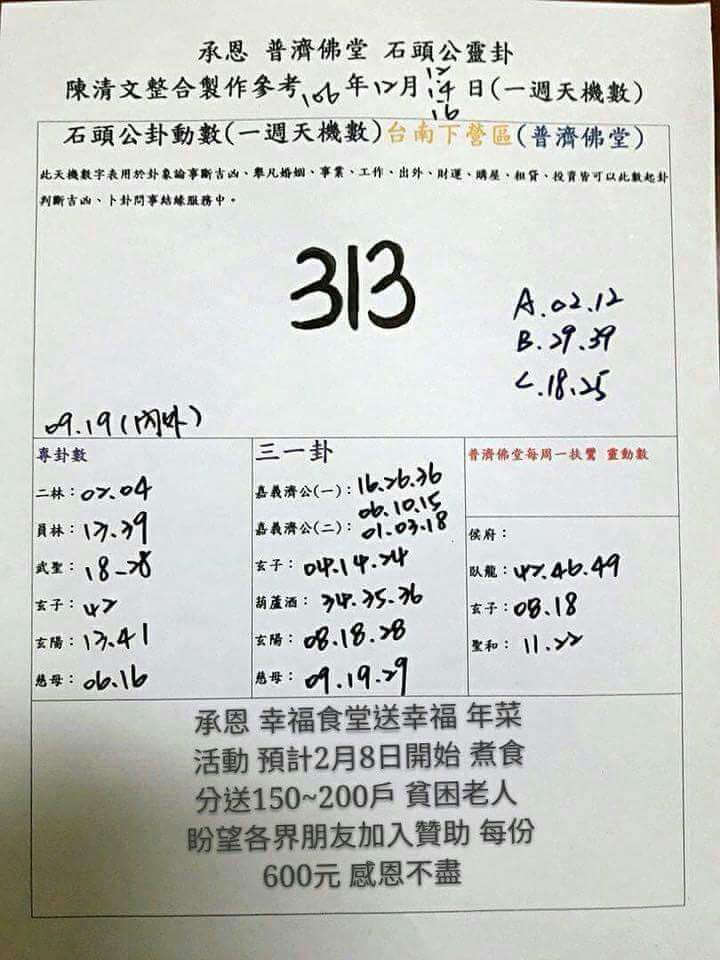 承恩 普濟佛堂 石頭公靈卦
陳清文整合製作參考106年12月12.14.16日(一週天機數)
石頭公卦動數(一週天機數)台南下營區(普濟佛堂)
此天機數字表用於卦象論事斷吉凶、舉凡婚姻、事業、工作、出外、財運、購屋、租貸、投資皆可以此數起卦
判斷吉凶、卜卦問事結緣服務中。
313
A.02.12
B.29.39
C.18.25
09.19(內外)
專卦數
二林：02.04
員林：17.39
武聖：18-28
玄子：42
玄陽：13.41
慈母：06.16
三一卦
嘉義濟公(一)：16.26.36
06.10.15
嘉義濟公(二)：01.03.18
玄子：04.14.24
葫蘆酒：34.35.36
玄陽：08.18.28
慈母：09.19.29
普濟佛堂每周一扶鸞 靈動數
侯府：
臥龍：42.46.49
玄子：08.18
聖和：11.22
承恩 幸福食堂送幸福 年菜
活動 預計2月8日開始 煮食
分送150~200戶 貧困老人
盼望各界朋友加入贊助 每份
600元 感恩不盡